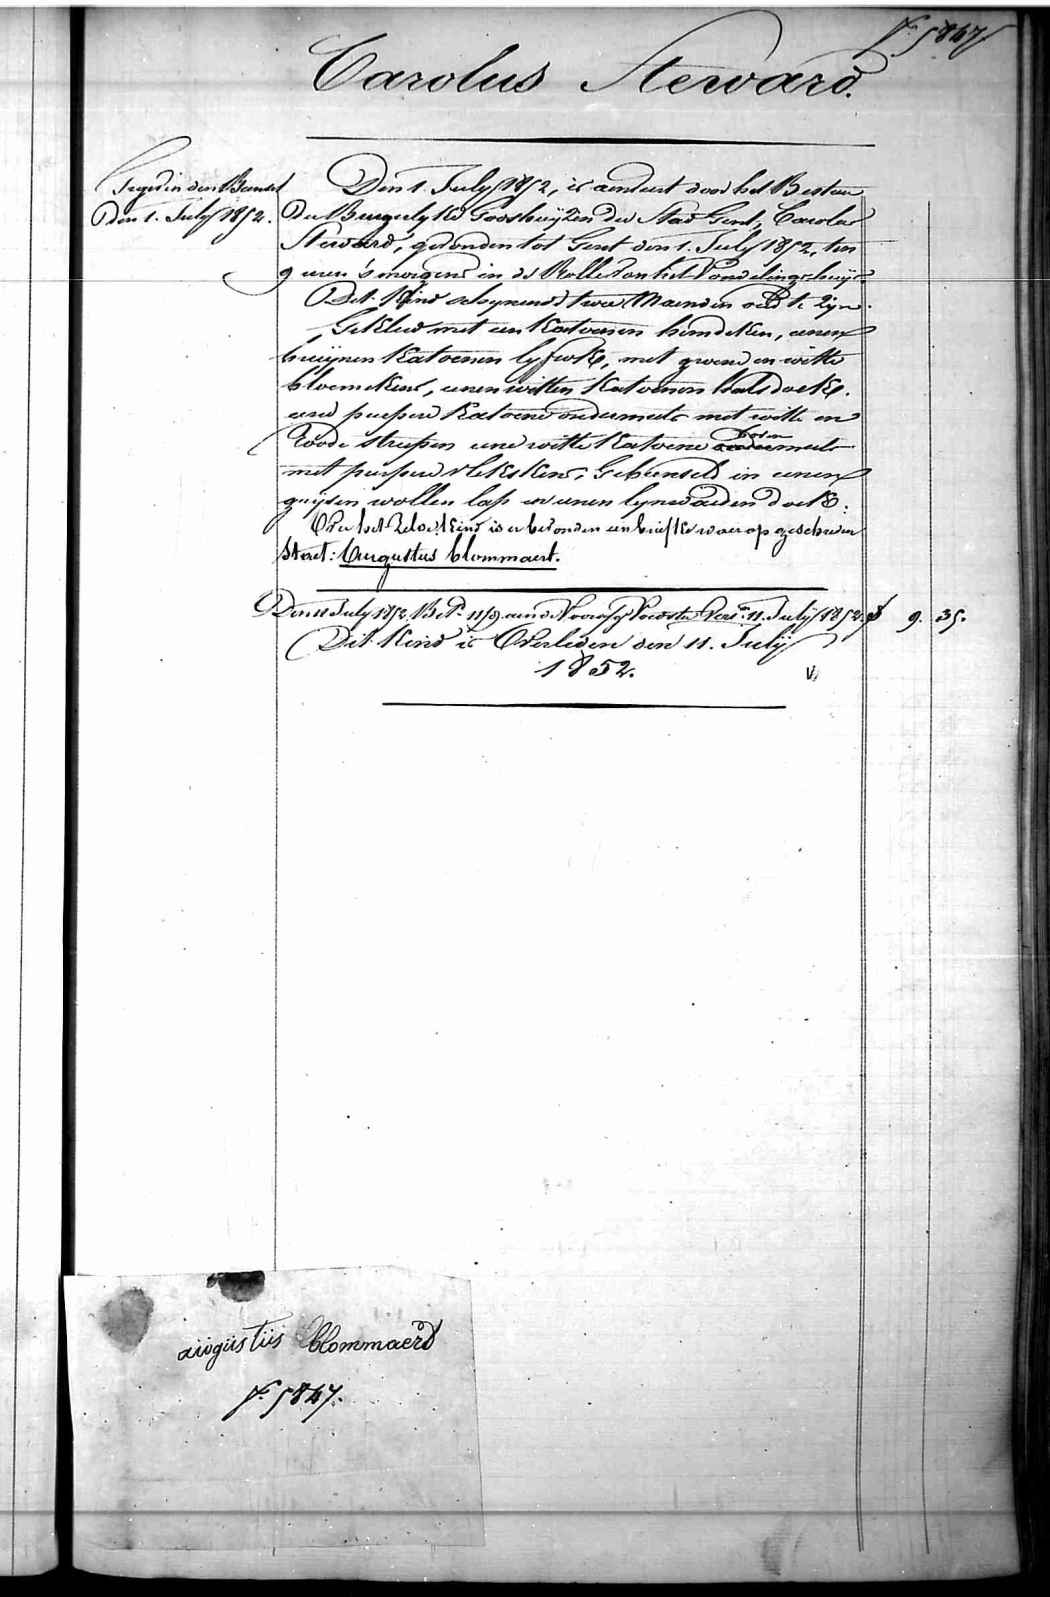 N.º 5847
Carolus Steward.
Inged in den Bundel
Den 1. July 1852.
Den 1. July 1852, is aenveert door het Bestuer
Der Burgerlyke Godshuyzen der Stad Gent, Carolus
Steward, gevonden tot Gent den 1. July 1852, ten
9 uren 's morgens in de Rolle van het Vondelingshuys.
Dit Kind schynende twee Maenden oud te Zyn.
Gekleed met een Katoenen hemdeken, eenen
bruynen Katoenen lyfrok, met groene en witte
bloemekens, eenen witten Katoenen halsdoek,
eene purpere Katoene ondermuts met witte en
roode streepen eene witte Katoene boven muts
met purpere vlekskens, Gebunseld in eenen
gryzen wollen lap en eenen lynwaeden doek.
Over het Zelve Kind is er bevonden een briefke waerop geschreven
Staet: Augustus blommaert.
Den 11 July 1852, 11 July 1852. 9. 35.
Dit Kind is Overleden den 11. July
1852.
augustus blommaerd
N.º 5847.